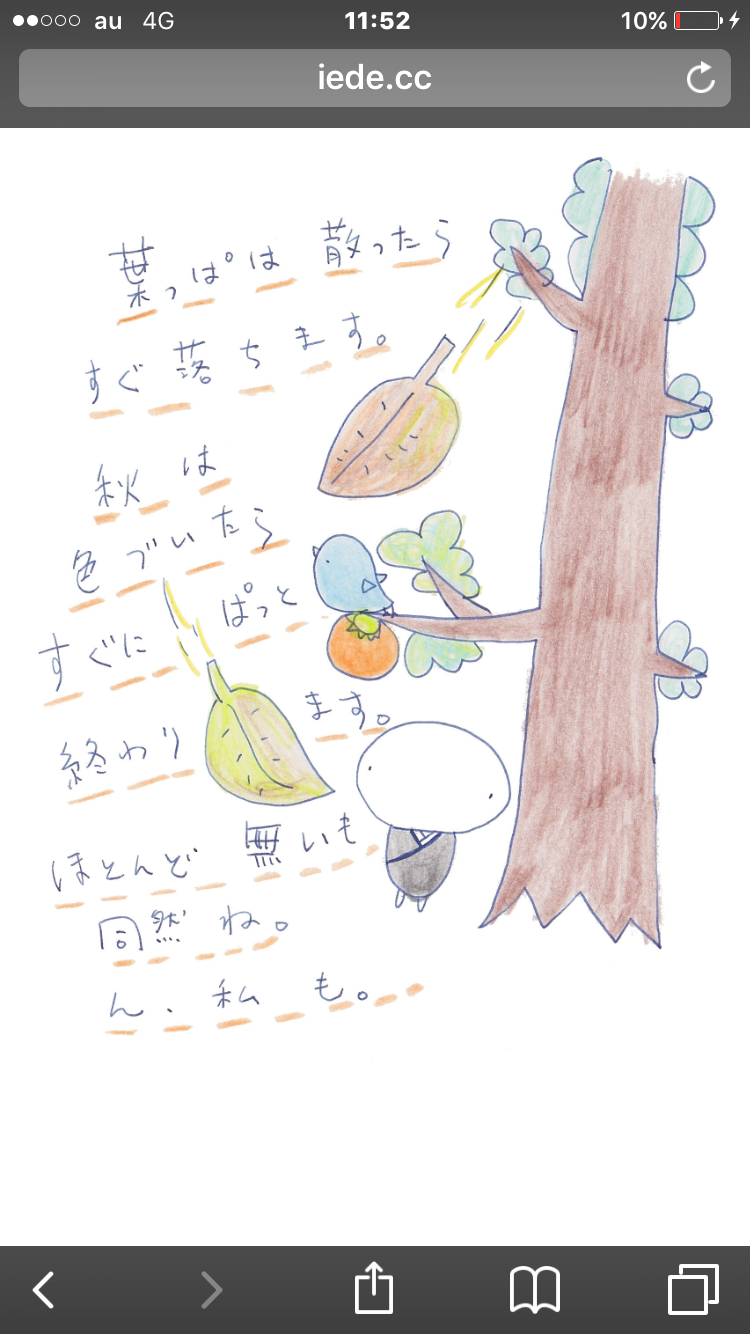 au 4G 11:52 10%
iede.cc
葉っぱは 散ったら
すぐ 落ちます。
秋は
色づいたら
すぐに ぱっと
終わり ます。
ほとんど 無いも
同然 ね。
ん、私 も。